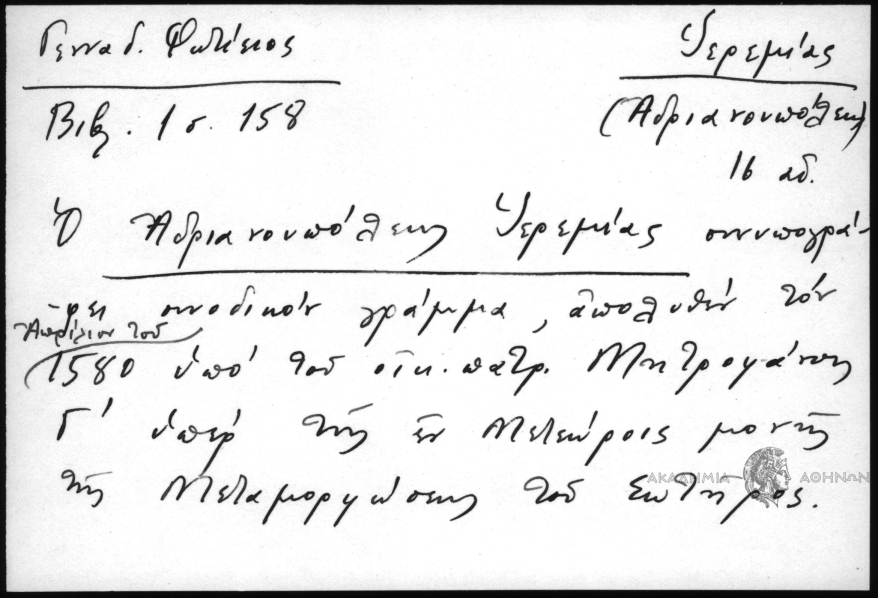 Γενναδ. Φωτίειος
Ἱερεμίας
Βιβ. 1 σ. 158
(Ἀδριανουπόλεως)
16 αἰ.
Ὁ Ἀδριανουπόλεως Ἱερεμίας συνυπογρά-
φει συνοδικόν γράμμα, ἀπολυθέν τόν
Ἀπρίλιον τοῦ
1580 ὑπό τοῦ οἰκ. πατρ. Μητροφάνους
Γ' ὑπέρ τῆς ἐν Μετεώροις μονῆς
τῆς Μεταμορφώσεως τοῦ Σωτῆρος.
ΑΚΑΔΗΜΙΑ ΑΘΗΝΩΝ